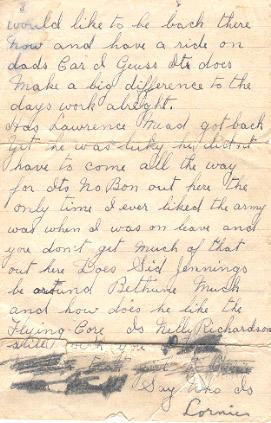 would like to be back there
now and have a ride on
dads Car I Guess Its does
Make a big difference to the
days work alright.
Has Lawrence Mead got back
yet he was luky he didint
have to come all the way
for Its No Bon out here the
only time I ever liked the army
was when I was on leave and
you dont get much of that
out here Does Sid Jennings
be around Bethune Much
and how does he like the
Flying Core Is Nelly Richardson
still with you
Say Who Is
Lornie